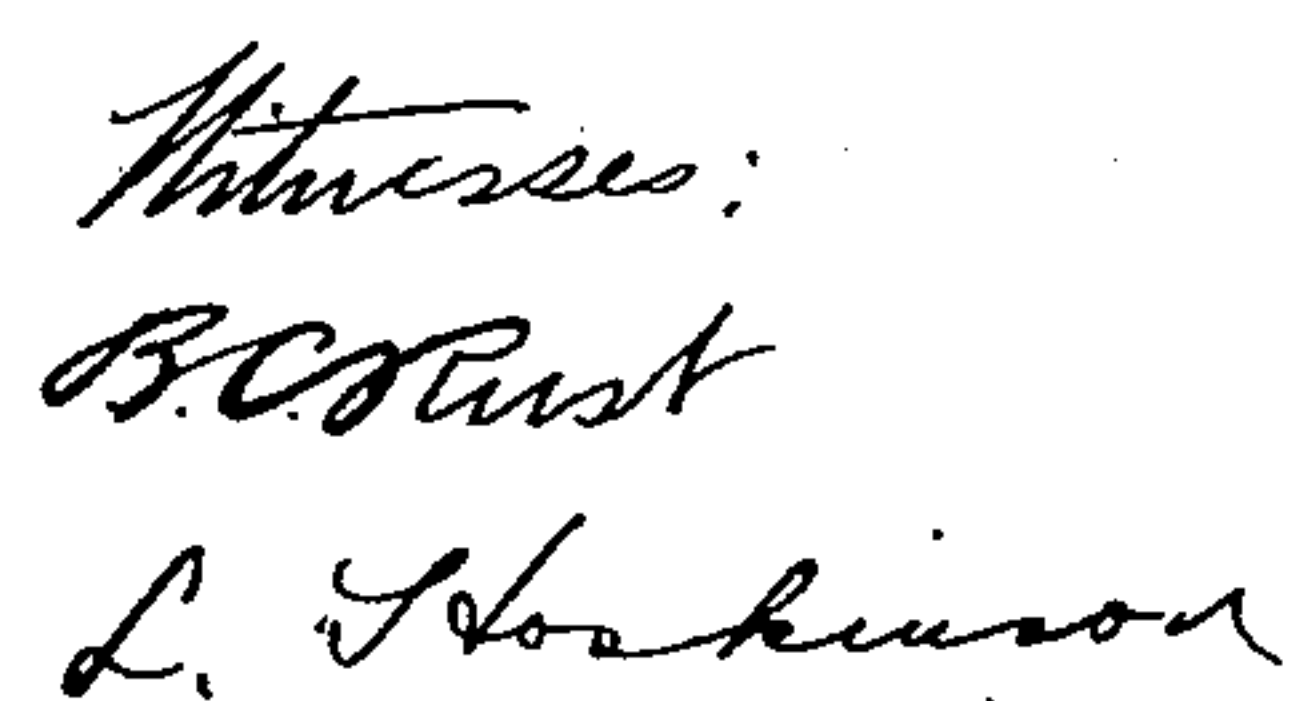 Witnesses:
B. C. Rust
L. Hoskinson